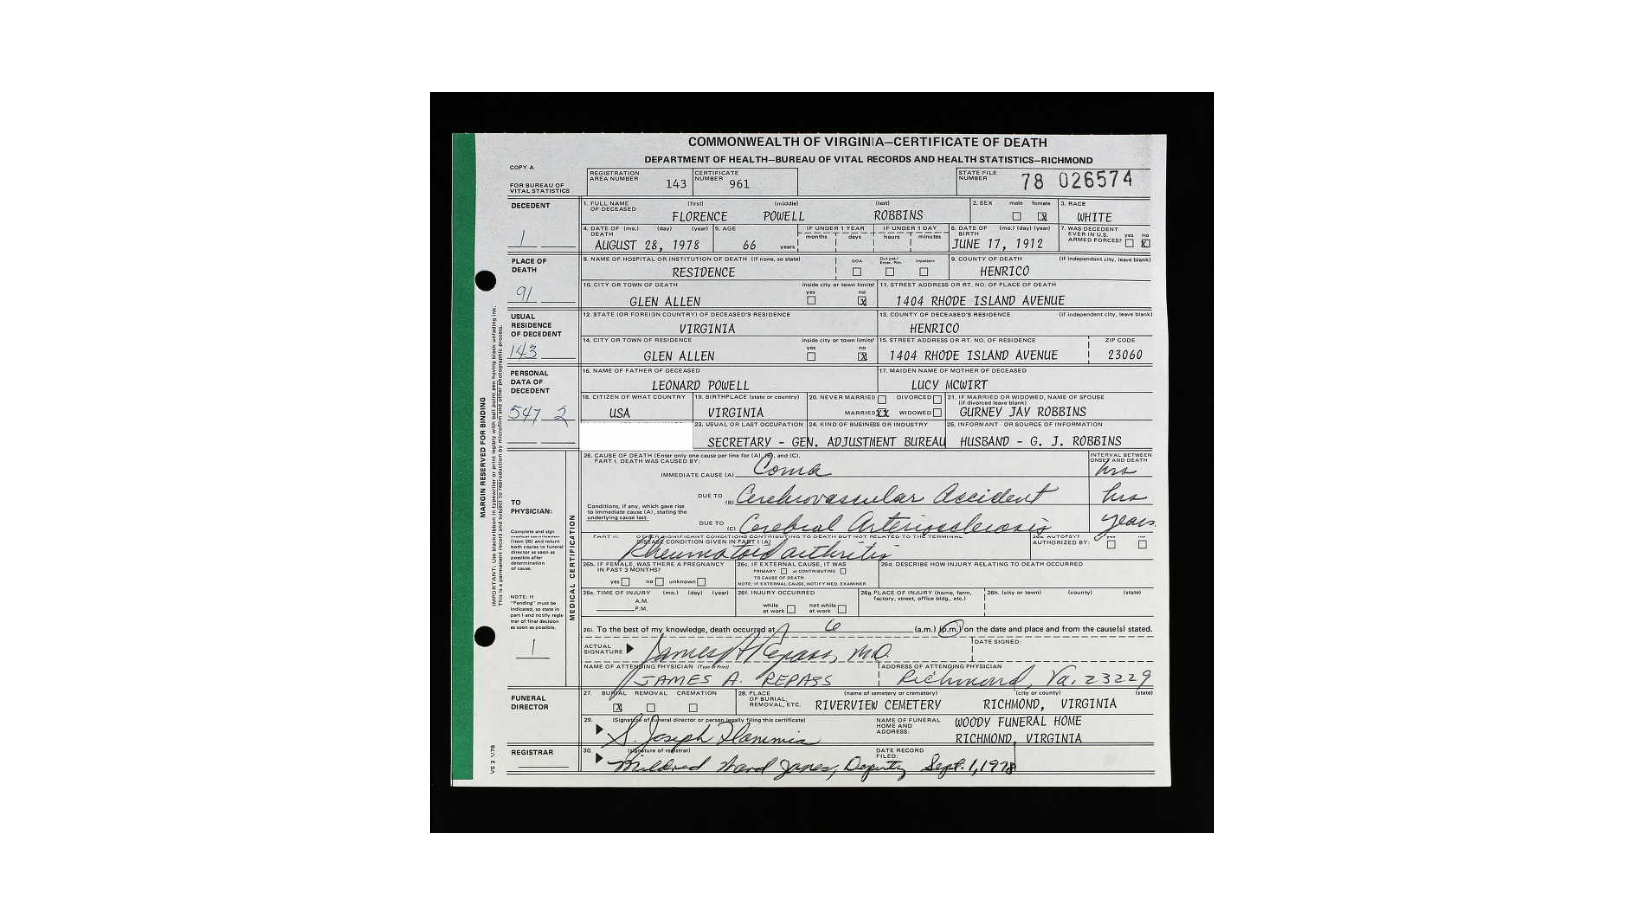 COMMONWEALTH OF VIRGINIA—CERTIFICATE OF DEATH
DEPARTMENT OF HEALTH—BUREAU OF VITAL RECORDS AND HEALTH STATISTICS—RICHMOND
COPY A
FOR BUREAU OF VITAL STATISTICS
REGISTRATION AREA NUMBER 143
CERTIFICATE NUMBER 961
STATE FILE NUMBER 78 026574
DECEDENT
1
1. FULL NAME OF DECEASED (first) (middle) (last)
FLORENCE POWELL ROBBINS
2. SEX male female X
3. RACE WHITE
4. DATE OF DEATH (mo.) (day) (year)
AUGUST 28, 1978
5. AGE 66 years
IF UNDER 1 YEAR months days
IF UNDER 1 DAY hours minutes
6. DATE OF BIRTH (mo.) (day) (year)
JUNE 17, 1912
7. WAS DECEDENT EVER IN U.S. ARMED FORCES? yes no X
PLACE OF DEATH
91
8. NAME OF HOSPITAL OR INSTITUTION OF DEATH (if none, so state)
RESIDENCE
DOA Inpatient
9. COUNTY OF DEATH (if independent city, leave blank)
HENRICO
10. CITY OR TOWN OF DEATH
GLEN ALLEN
inside city or town limits? yes no X
11. STREET ADDRESS OR RT. NO. OF PLACE OF DEATH
1404 RHODE ISLAND AVENUE
USUAL RESIDENCE OF DECEDENT
143
12. STATE (OR FOREIGN COUNTRY) OF DECEASED'S RESIDENCE
VIRGINIA
13. COUNTY OF DECEASED'S RESIDENCE (if independent city, leave blank)
HENRICO
14. CITY OR TOWN OF RESIDENCE
GLEN ALLEN
inside city or town limits? yes no X
15. STREET ADDRESS OR RT. NO. OF RESIDENCE
1404 RHODE ISLAND AVENUE
ZIP CODE
23060
PERSONAL DATA OF DECEDENT
547 2
16. NAME OF FATHER OF DECEASED
LEONARD POWELL
17. MAIDEN NAME OF MOTHER OF DECEASED
LUCY MCWIRT
18. CITIZEN OF WHAT COUNTRY
USA
19. BIRTHPLACE (state or country)
VIRGINIA
20. NEVER MARRIED DIVORCED
MARRIED XX WIDOWED
21. IF MARRIED OR WIDOWED, NAME OF SPOUSE (if divorced leave blank)
GURNEY JAY ROBBINS
23. USUAL OR LAST OCCUPATION
24. KIND OF BUSINESS OR INDUSTRY
SECRETARY - GEN. ADJUSTMENT BUREAU
25. INFORMANT OR SOURCE OF INFORMATION
HUSBAND - G. J. ROBBINS
MARGIN RESERVED FOR BINDING
MEDICAL CERTIFICATION
26. CAUSE OF DEATH (Enter only one cause per line for (A), (B), and (C).)
PART I. DEATH WAS CAUSED BY:
IMMEDIATE CAUSE (A) Coma
INTERVAL BETWEEN ONSET AND DEATH
hrs
DUE TO (B) Cerebrovascular Accident hrs
Conditions, if any, which gave rise to immediate cause (A), stating the underlying cause last.
DUE TO (C) Cerebral Arteriosclerosis years
TO PHYSICIAN:
PART II. OTHER SIGNIFICANT CONDITIONS CONTRIBUTING TO DEATH BUT NOT RELATED TO THE TERMINAL DISEASE CONDITION GIVEN IN PART I (A)
Rheumatoid arthritis
26a. AUTOPSY? yes no
AUTHORIZED BY:
26b. IF FEMALE, WAS THERE A PREGNANCY IN PAST 3 MONTHS?
yes no unknown
26c. IF EXTERNAL CAUSE, IT WAS
PRIMARY or CONTRIBUTING
TO CAUSE OF DEATH
NOTE: IF EXTERNAL CAUSE, NOTIFY MED. EXAMINER
26d. DESCRIBE HOW INJURY RELATING TO DEATH OCCURRED
26e. TIME OF INJURY (mo.) (day) (year)
A.M.
P.M.
26f. INJURY OCCURRED
while at work not while at work
26g. PLACE OF INJURY (home, farm, factory, street, office bldg., etc.)
26h. (city or town) (county) (state)
NOTE: If "Pending" must be indicated, so state in part I and notify registrar of final decision as soon as possible.
1
26i. To the best of my knowledge, death occurred at 6 (a.m.) (p.m.) on the date and place and from the cause(s) stated.
ACTUAL SIGNATURE James A Repass, M.D.
DATE SIGNED:
NAME OF ATTENDING PHYSICIAN (Type or Print)
JAMES A. REPASS
ADDRESS OF ATTENDING PHYSICIAN
Richmond, Va. 23229
FUNERAL DIRECTOR
27. BURIAL REMOVAL CREMATION
X
28. PLACE OF BURIAL, REMOVAL, ETC.
(name of cemetery or crematory) (city or county) (state)
RIVERVIEW CEMETERY RICHMOND, VIRGINIA
29. (Signature of funeral director or person legally filing this certificate)
S. Joseph Flammia
NAME OF FUNERAL HOME AND ADDRESS:
WOODY FUNERAL HOME
RICHMOND, VIRGINIA
REGISTRAR
30. (signature of registrar)
Mildred Ward Jones, Deputy
DATE RECORD FILED:
Sept. 1, 1978
VS 2 1/78